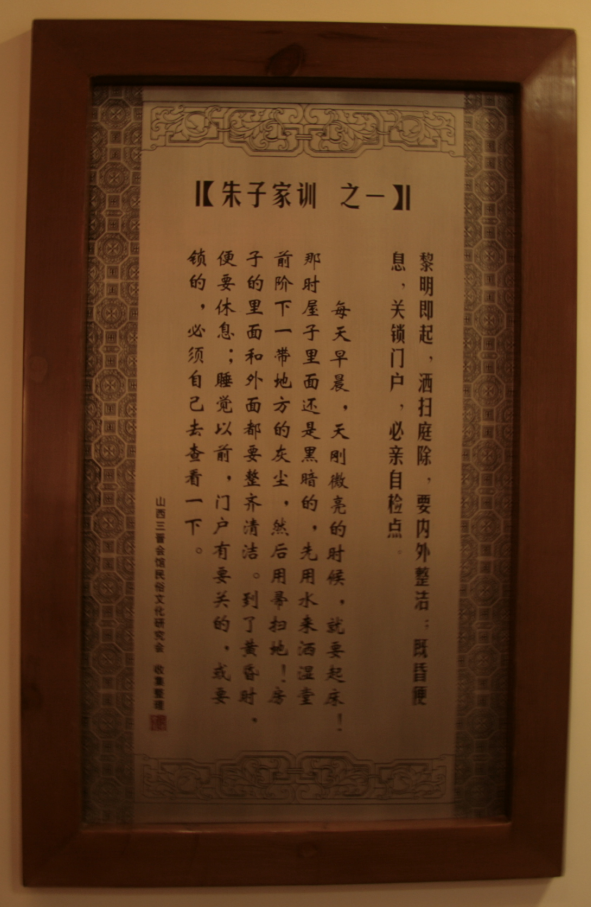 【朱子家训 之一】
黎明即起，洒扫庭除，要内外整洁；既昏便
息，关锁门户，必亲自检点。
每天早晨，天刚微亮的时候，就要起床！
那时屋子里面还是黑暗的，先用水来洒湿堂
前阶下一带地方的灰尘，然后用帚扫地！房
子的里面和外面都要整齐清洁。到了黄昏时，
便要休息；睡觉以前，门户有要关的，或要
锁的，必须自己去查看一下。
山西三晋会馆民俗文化研究会 收集整理